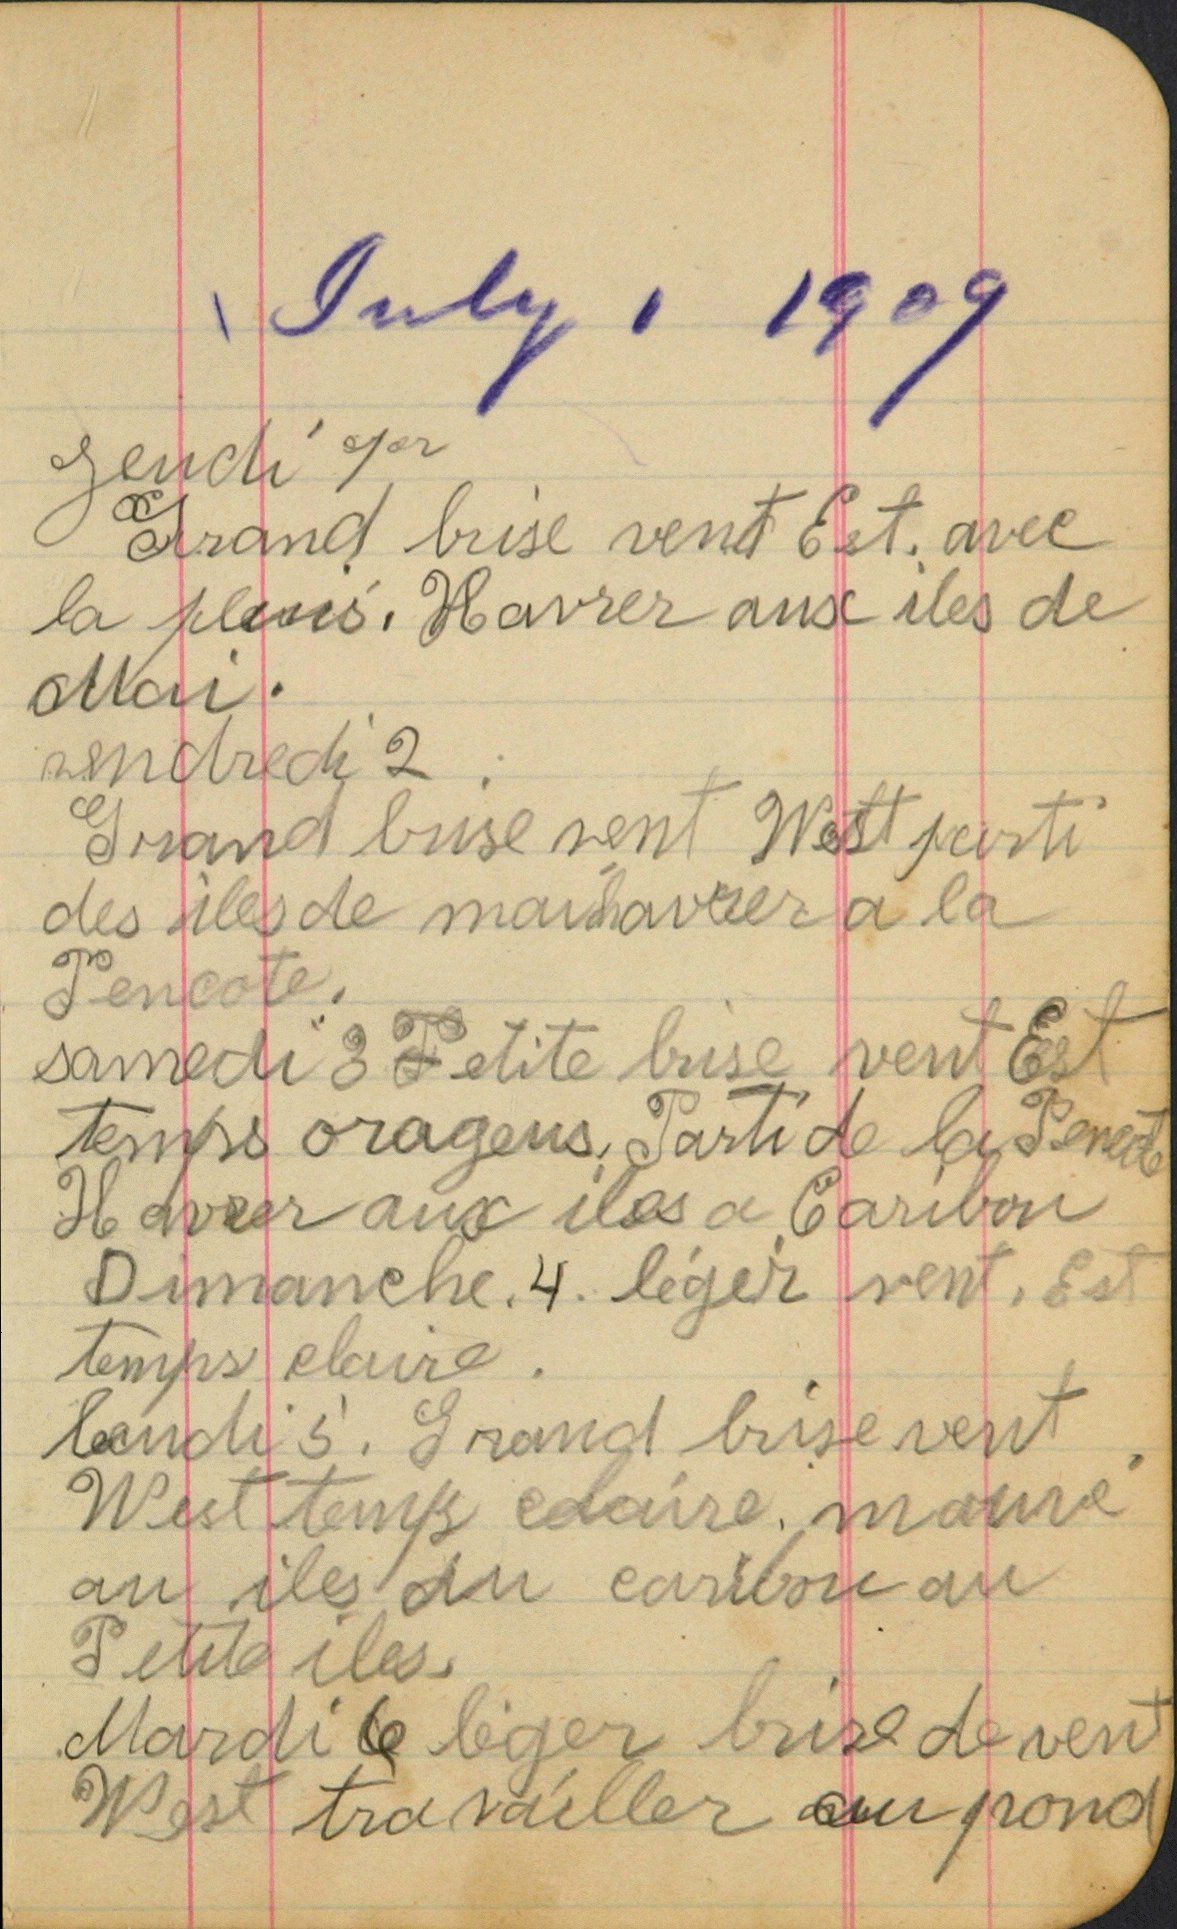 July 1 1909
jeudi 1er
Grand brise vent Est. avec
la pluis. Havrer aux iles de
Mai.
vendredi 2.
Grand brise vent West parti
des iles de mai havrer a la
Pencote.
samedi 3 Petite brise vent Est
temps orageus. Parti de la Pencote
Havrer aux iles a Caribou
Dimanche. 4. léger vent. Est
temps claire.
lundi 5. Grand brise vent
West temps claire.
au iles du caribou au
Petite iles.
Mardi 6 léger brise de vent
West travailler au pond